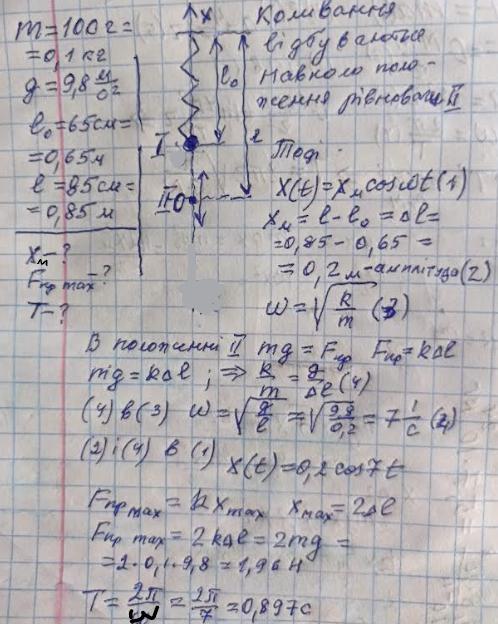 m=100г=
=0,1 кг
g=9,8 м/с²
l₀=65см=
=0,65м
l=85см=
=0,85 м
xм-?
Fпр max-?
T-?
x
l₀
l
I
II 0
Коливання
відбуваються
навколо поло-
ження рівноваги II
Тоді
X(t)=xм cosωt (1)
xм=l-l₀=Δl=
=0,85-0,65=
=0,2м-амплітуда(2)
ω=√(k/m) (3)
В положенні II mg=Fпр Fпр=kΔl
mg=kΔl ; => k/m = g/Δl (4)
(4) в (3) ω=√(g/l) = √(9,8/0,2) = 7 1/с
(2) і (4) в (1)
X(t)=0,2cos7t
Fпр max = kxmax xmax=2Δl
Fпр max = 2kΔl=2mg=
=2·0,1·9,8=1,96Н
T=2π/ω=2π/7=0,897с